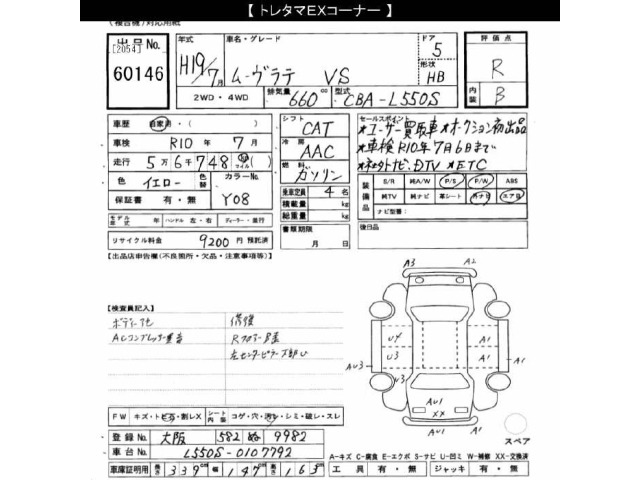 【 トレタマEXコーナー 】
(複合機)対応用紙
出品No.
[2054]
60146
年式
H19/7月
車名・グレード
ムーヴラテ VS
ドア
5
形状
HB
評価点
R
内装
B
2WD・4WD
排気量
660cc
型式
CBA-L550S
車歴
自家用・( )
車検
R10年 7月
走行
5万6千748 Km マイル ( )
色
イエロー
色替
カラーNo.
Y08
保証書
有・無
モデル年式
年
ハンドル 左・右
ディーラー・並行
リサイクル料金
9200円 預託済
シフト
CAT
冷房
AAC
燃料
ガソリン
乗車定員
4名
積載量
kg
総重量
kg
書類期限
月 日
セールスポイント
*ユーザー買取車*オークション初出品
*車検R10年7月6日まで
*ETC
装備品
S/R
純A/W
P/S
P/W
ABS
純TV
純ナビ
革シート
外ナビ
エアB
ナビ型番:
後日品
【出品店申告欄(不良箇所・欠品・注意事項等)】
【検査員記入】
修復
Rフロアー
左センターピラー
A3
A2
U4
U3
AU3
A1
A1
A1
AU1
XX
AU1
スペア
FW
キズ・トビ石・割レX
シート内装
コゲ・穴・汚レ・シミ・破レ・スレ
登録No.
大阪 582 ぬ 9982
車台No.
L550S-0107792
車庫証明用
長さ 339cm
幅 147cm
高さ 163cm
A-キズ C-腐食 E-エクボ S-サビ U-凹ミ W-補修 XX-交換済
工具
有・無
ジャッキ
有・無